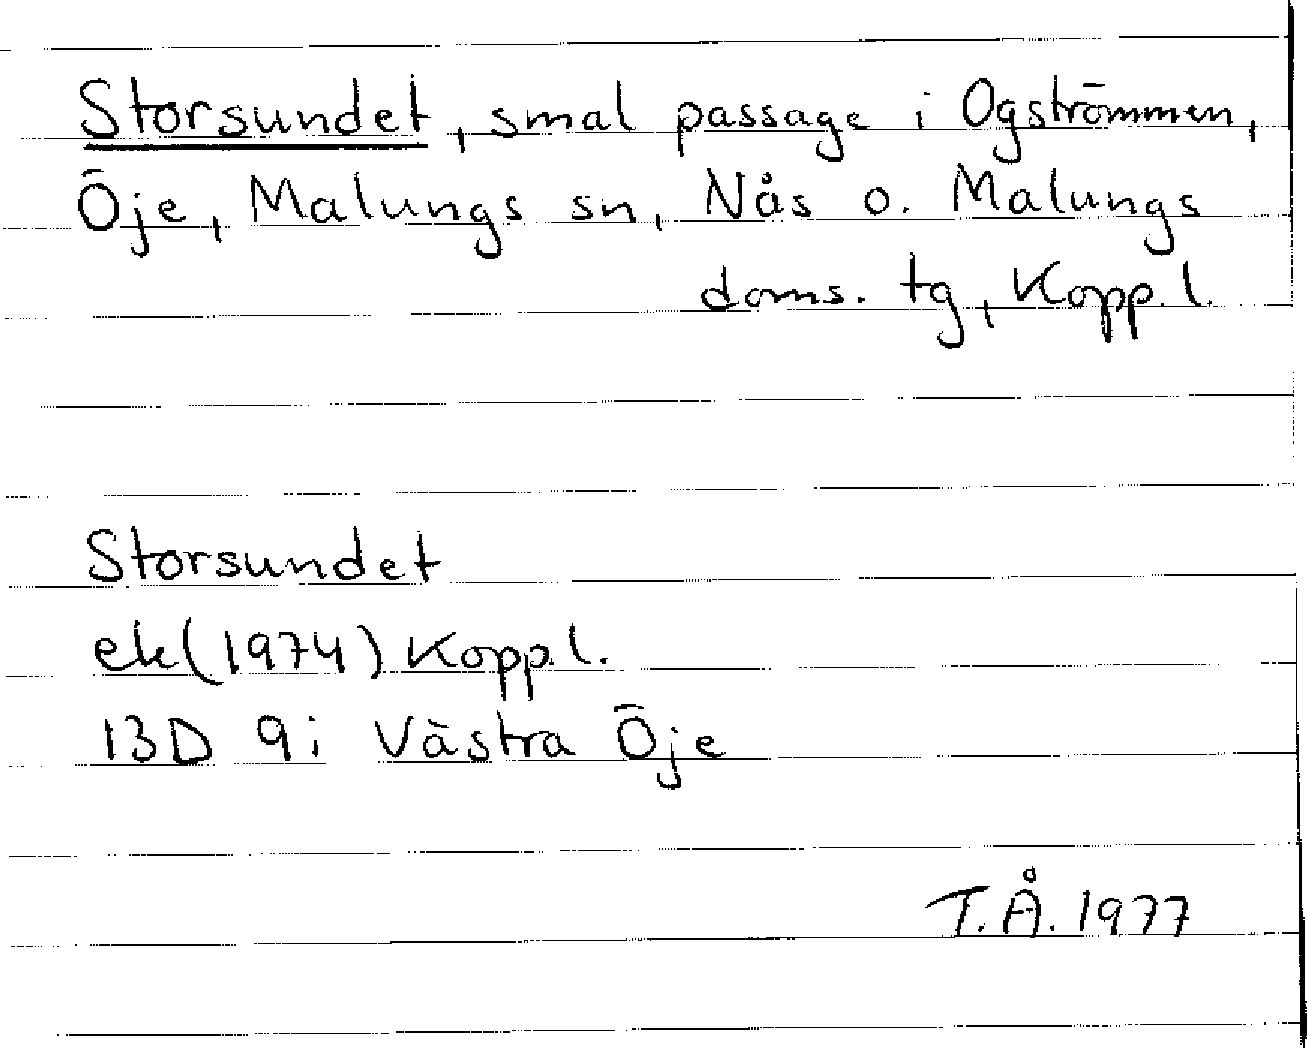 Storsundet, smal passage i Ogströmmen,
Öje, Malungs sn, Nås o. Malungs
doms. tg, Kopp. l.
Storsundet
ek (1974) Kopp. l.
13D 9i Västra Öje
T. Å. 1977